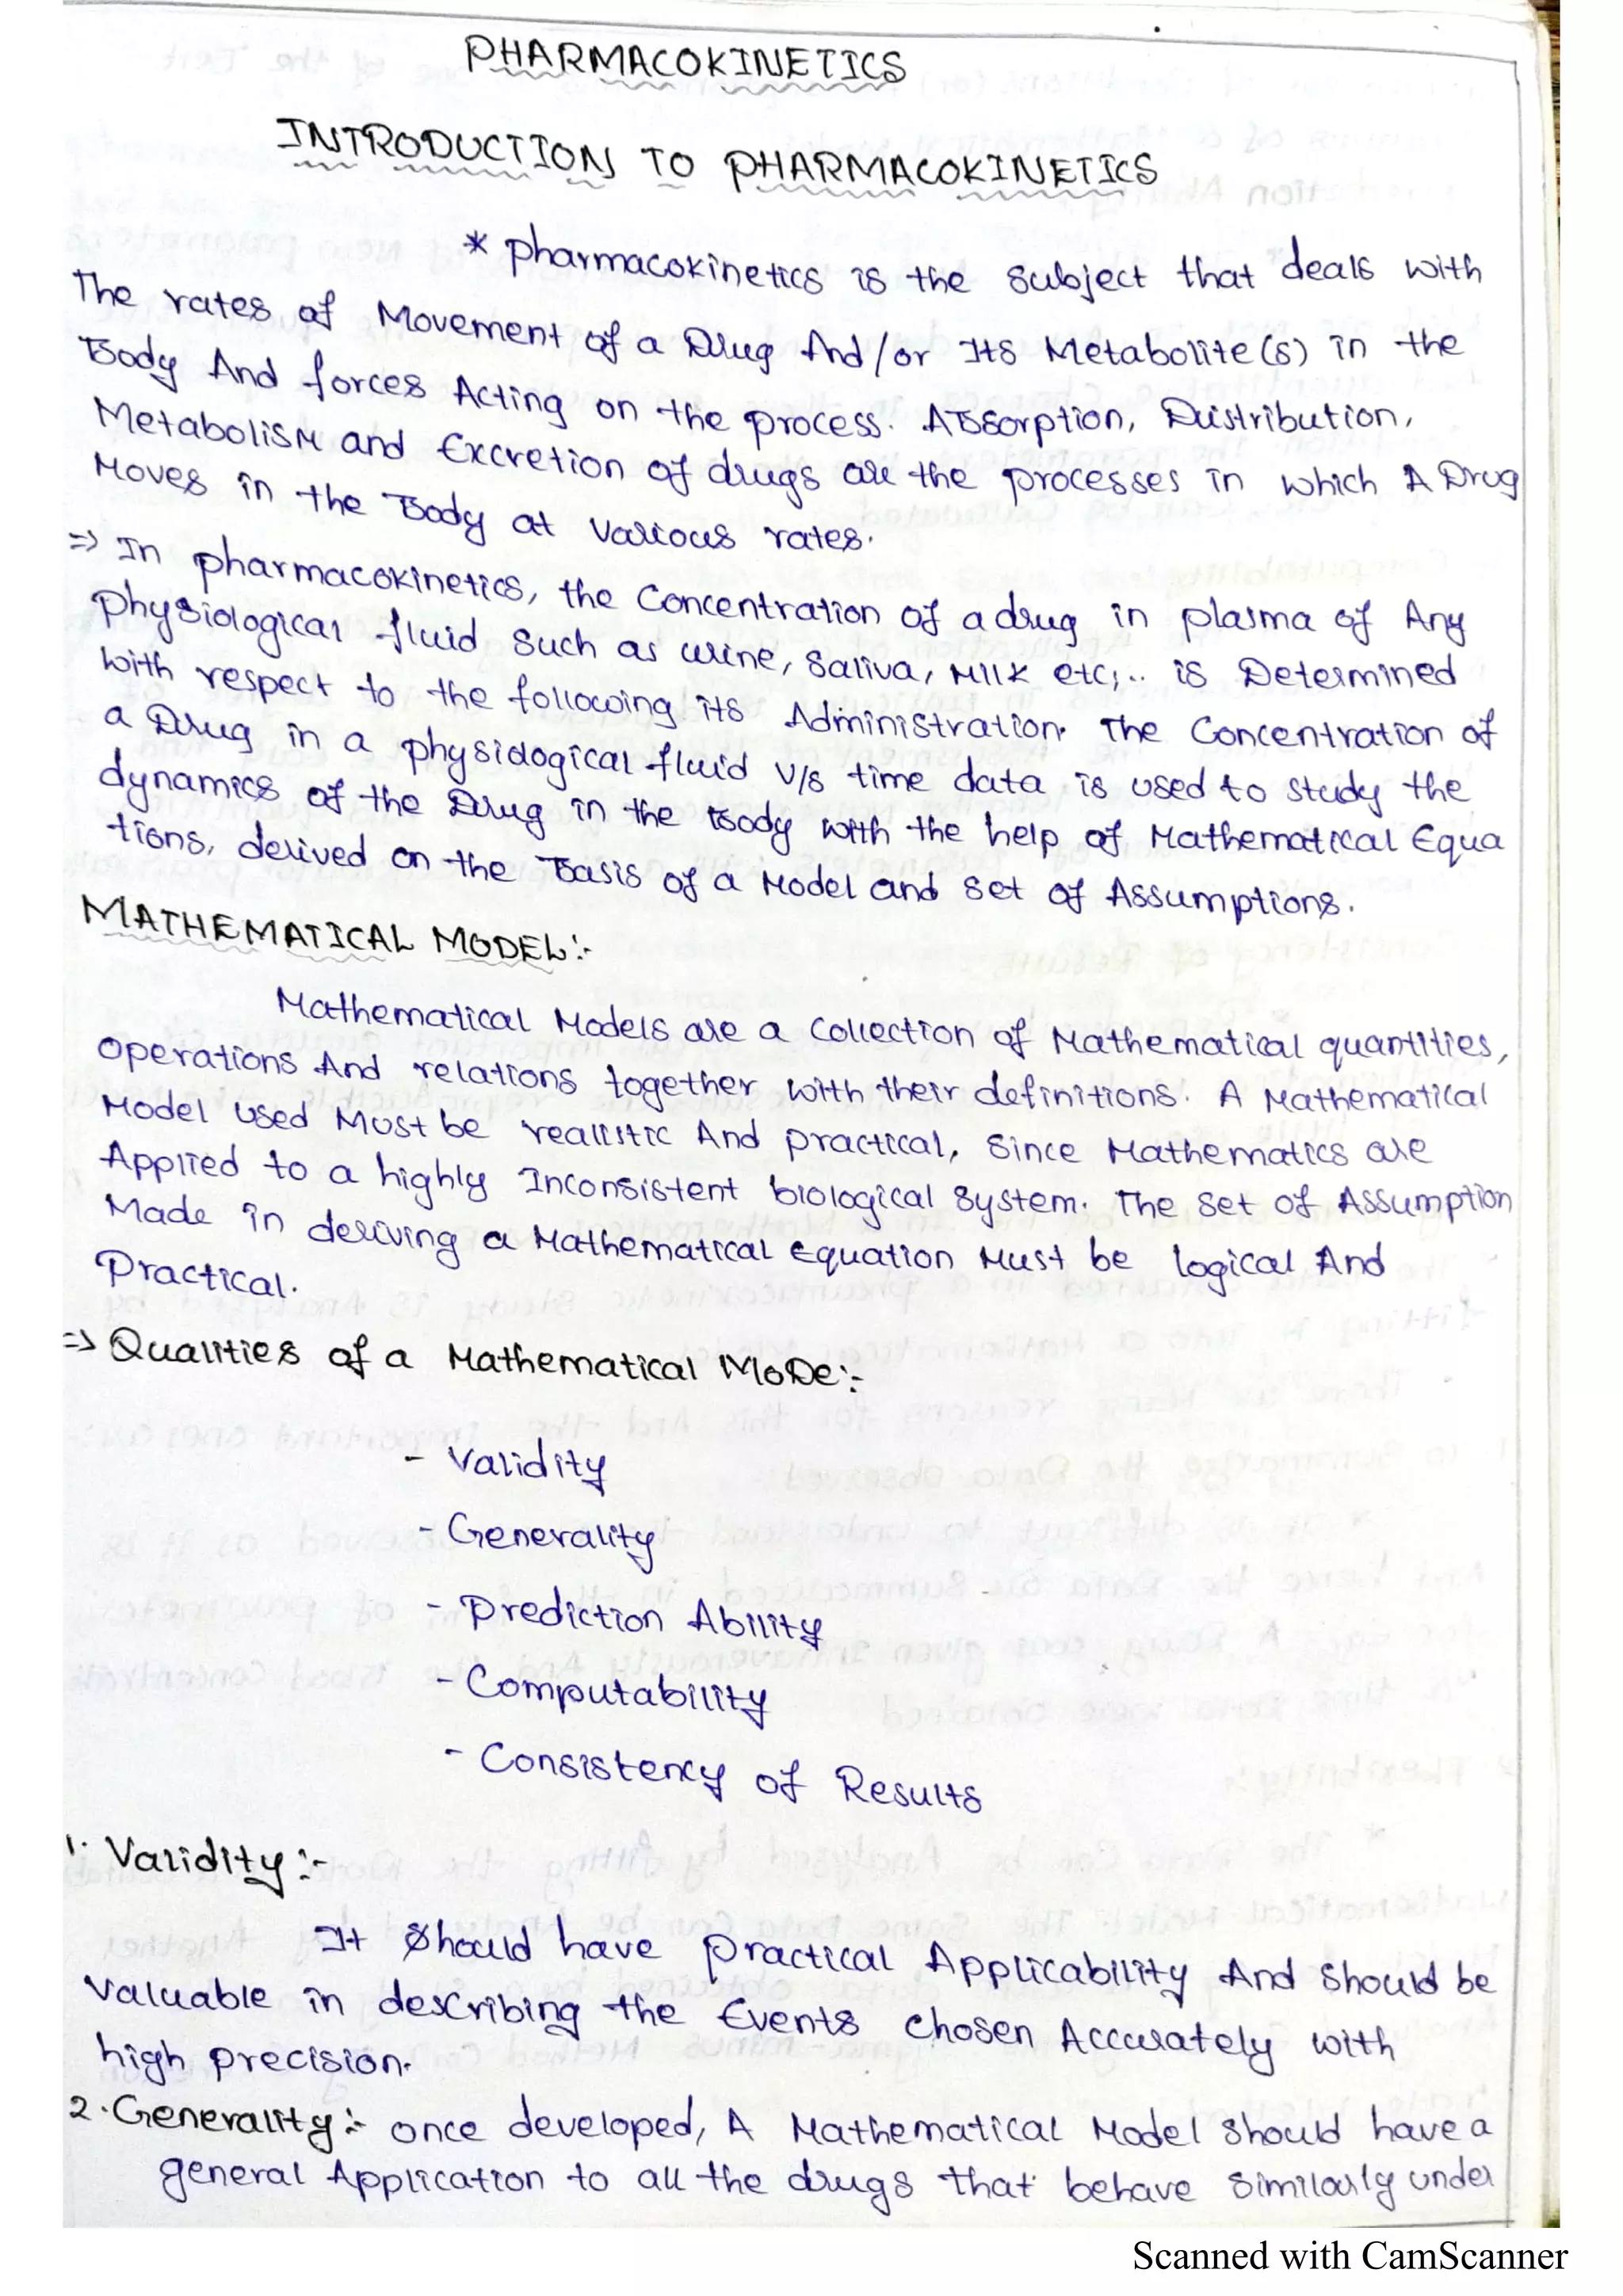 PHARMACOKINETICS
INTRODUCTION TO PHARMACOKINETICS
* pharmacokinetics is the subject that deals with
The rates of Movement of a Drug And/or Its Metabolite(s) in the
Body And forces Acting on the process. Absorption, Distribution,
Metabolism and Excretion of drugs are the processes in which A Drug
Moves in the Body at various rates.
=> In pharmacokinetics, the Concentration of a drug in plasma of Any
physiological fluid such as urine, saliva, Milk etc,.. is Determined
with respect to the following its Administration. The Concentration of
a Drug in a physiological fluid v/s time data is used to study the
dynamics of the Drug in the Body with the help of Mathematical Equa
tions, derived on the Basis of a Model and set of Assumptions.
MATHEMATICAL MODEL:-
Mathematical Models are a Collection of Mathematical quantities,
operations And relations together with their definitions. A Mathematical
Model used Must be realistic And practical, since Mathematics are
Applied to a highly Inconsistent biological system. The set of Assumption
Made in deriving a Mathematical Equation Must be logical And
Practical.
=> Qualities of a Mathematical MoDe:-
- Validity
- Generality
- Prediction Ability
- Computability
- Consistency of Results
1. Validity:-
It should have practical Applicability And should be
valuable in describing the Events chosen Accurately with
high precision.
2. Generality:- once developed, A Mathematical Model should have a
general Application to all the drugs that behave similarly under
Scanned with CamScanner